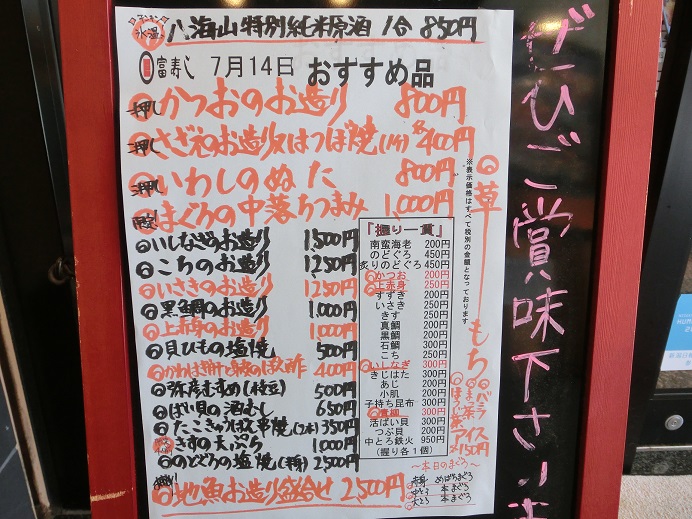 氷温 八海山特別純米原酒 1合 850円
富寿し 7月14日 おすすめ品
押し かつおのお造り 800円
押し さざえのお造り又はつぼ焼(1ケ) 400円
押し いわしのぬた 800円
まぐろの中落ちつまみ 1,000円
いしなぎのお造り 1,500円
こちのお造り 1,250円
いさきのお造り 1,250円
黒鯛のお造り 1,000円
上赤身のお造り 1,000円
貝ひもの塩焼 500円
400円
弥彦むすめ(枝豆) 500円
ばい貝の酒むし 650円
たこきゅうばん串焼(2本) 350円
きすの天ぷら 1,000円
のどぐろの塩焼(1梅) 2,500円
地魚お造り盛合せ 2,500円
※表示価格はすべて税別の金額となっております
『握り一貫』
南蛮海老 200円
のどぐろ 450円
炙りのどぐろ 450円
かつお 200円
上赤身 250円
すずき 200円
いさき 250円
きす 250円
真鯛 300円
黒鯛 300円
石鯛 300円
こち 250円
いしなぎ 300円
きじはた 300円
あじ 200円
小肌 200円
子持ち昆布 300円
青柳 300円
活ばい貝 300円
つぶ貝 200円
中とろ鉄火 950円
(握り各1個)
草もち
バニラ
まっ茶
ほうじ茶
アイス
150円
～本日のまぐろ～
赤身 めばちまぐろ
中とろ 本まぐろ
大とろ 本まぐろ
ぜひご賞味下さいま